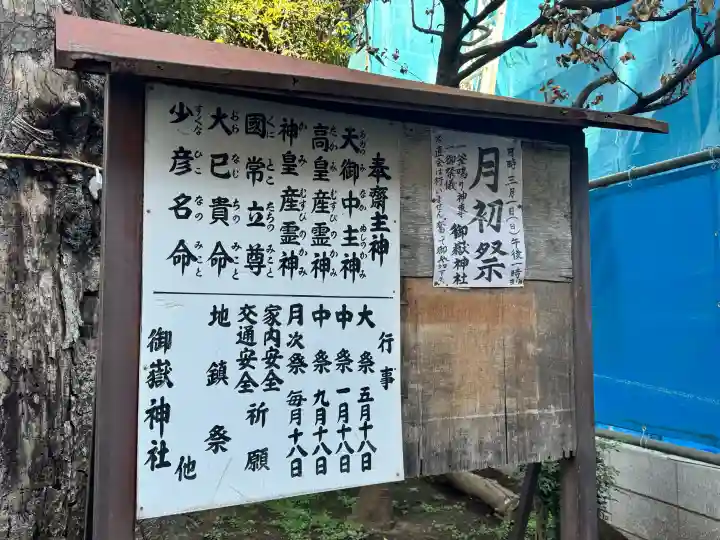 月初祭
日時 三月一日(日)午後一時
一、釜鳴り神事
一、御祭儀
御嶽神社
奉齋主神
天御中主神
高皇産霊神
神皇産霊神
國常立尊
大己貴命
少彦名命
行事
大祭 五月十八日
中祭 一月十八日
中祭 九月十八日
月次祭 毎月十八日
家内安全
交通安全
祈願
地鎮祭 他
御嶽神社